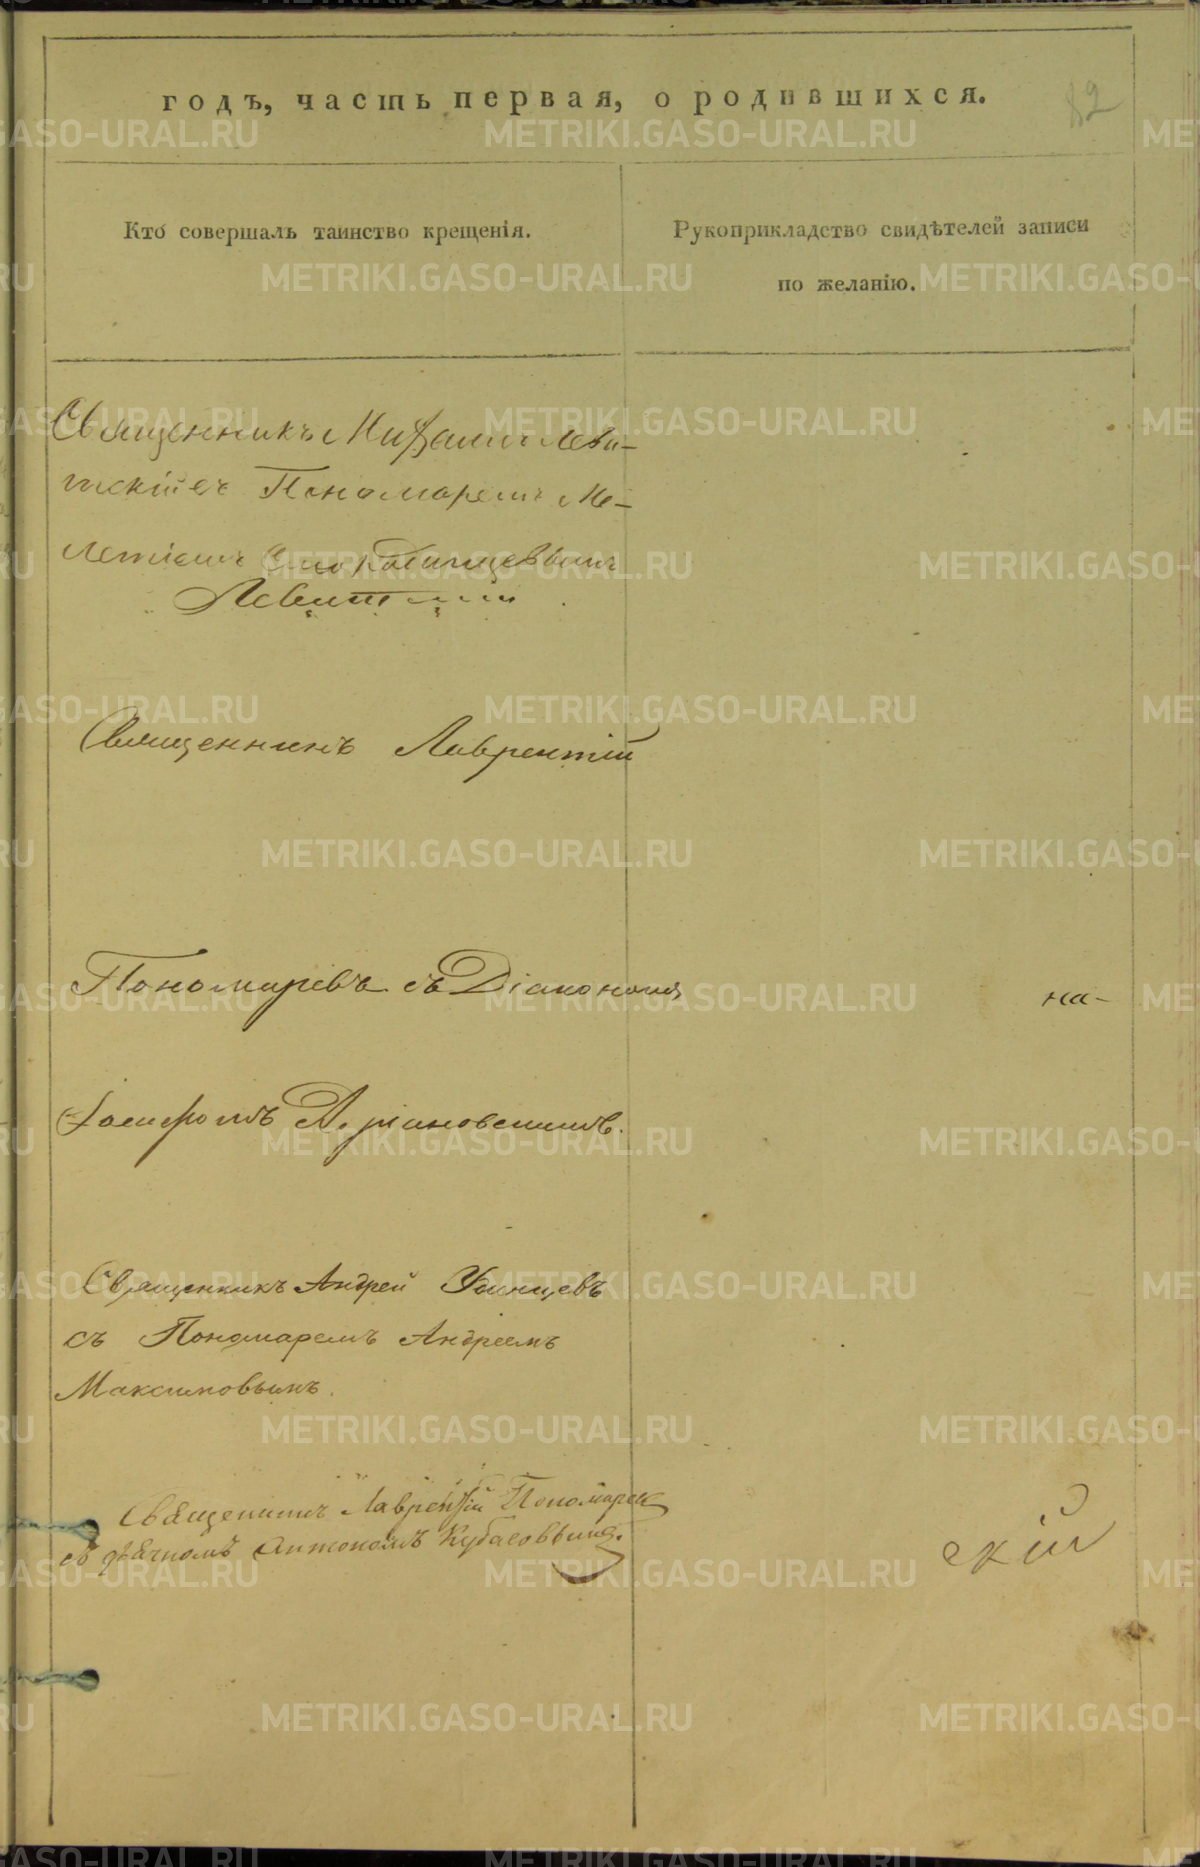 годъ, часть первая, о родившихся.
82
Кто совершалъ таинство крещенія.
Рукоприкладство свидѣтелей записи
по желанію.
Священникъ Михаилъ Леви-
тскій съ Пономаремъ Ме-
летіемъ
Левитскій
Священникъ Лаврентій
Пономаревъ съ Діакономъ
на-
Іосифомъ
Священникъ Андрей Уминцевъ
съ Пономаремъ Андреемъ
Максимовымъ.
Священникъ Лаврентій Пономарев
съ дьячкомъ Антономъ Кубасовымъ.
скій
METRIKI.GASO-URAL.RU